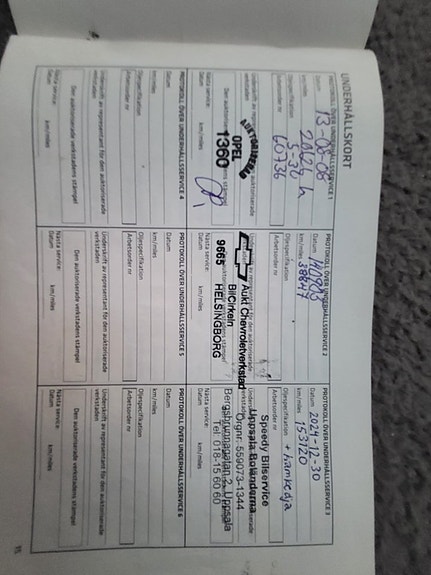 UNDERHÅLLSKORT
PROTOKOLL ÖVER UNDERHÅLLSSERVICE 1
Datum 13-08-06
km/miles
Oljespecifikation 5-30
Arbetsorder nr 60736
Underskrift av representant för den auktoriserade
verkstaden
Den auktoriserade verkstadens stämpel
AUKTORISERAD
OPEL
1360
Nästa service: km/miles
PROTOKOLL ÖVER UNDERHÅLLSSERVICE 2
Datum 140903
km/miles 38847
Oljespecifikation
Arbetsorder nr
Underskrift av representant för den auktoriserade
verkstaden
Den auktoriserade verkstadens stämpel
Aukt Chevroletverkstad
BilCirkeln
HELSINGBORG
9665
Nästa service: km/miles
PROTOKOLL ÖVER UNDERHÅLLSSERVICE 3
Datum 2021-12-30
km/miles 153120
Oljespecifikation + hamkedja
Arbetsorder nr
Speedy Bilservice
Uppsala Boländerna
Orgnr: 559073-1344
Bergsbrunnagatan 2, Uppsala
Tel: 018-15 60 60
Nästa service: km/miles
PROTOKOLL ÖVER UNDERHÅLLSSERVICE 4
Datum
km/miles
Oljespecifikation
Arbetsorder nr
Underskrift av representant för den auktoriserade
verkstaden
Den auktoriserade verkstadens stämpel
Nästa service: km/miles
PROTOKOLL ÖVER UNDERHÅLLSSERVICE 5
Datum
km/miles
Oljespecifikation
Arbetsorder nr
Underskrift av representant för den auktoriserade
verkstaden
Den auktoriserade verkstadens stämpel
Nästa service: km/miles
PROTOKOLL ÖVER UNDERHÅLLSSERVICE 6
Datum
km/miles
Oljespecifikation
Arbetsorder nr
Underskrift av representant för den auktoriserade
verkstaden
Den auktoriserade verkstadens stämpel
Nästa service: km/miles